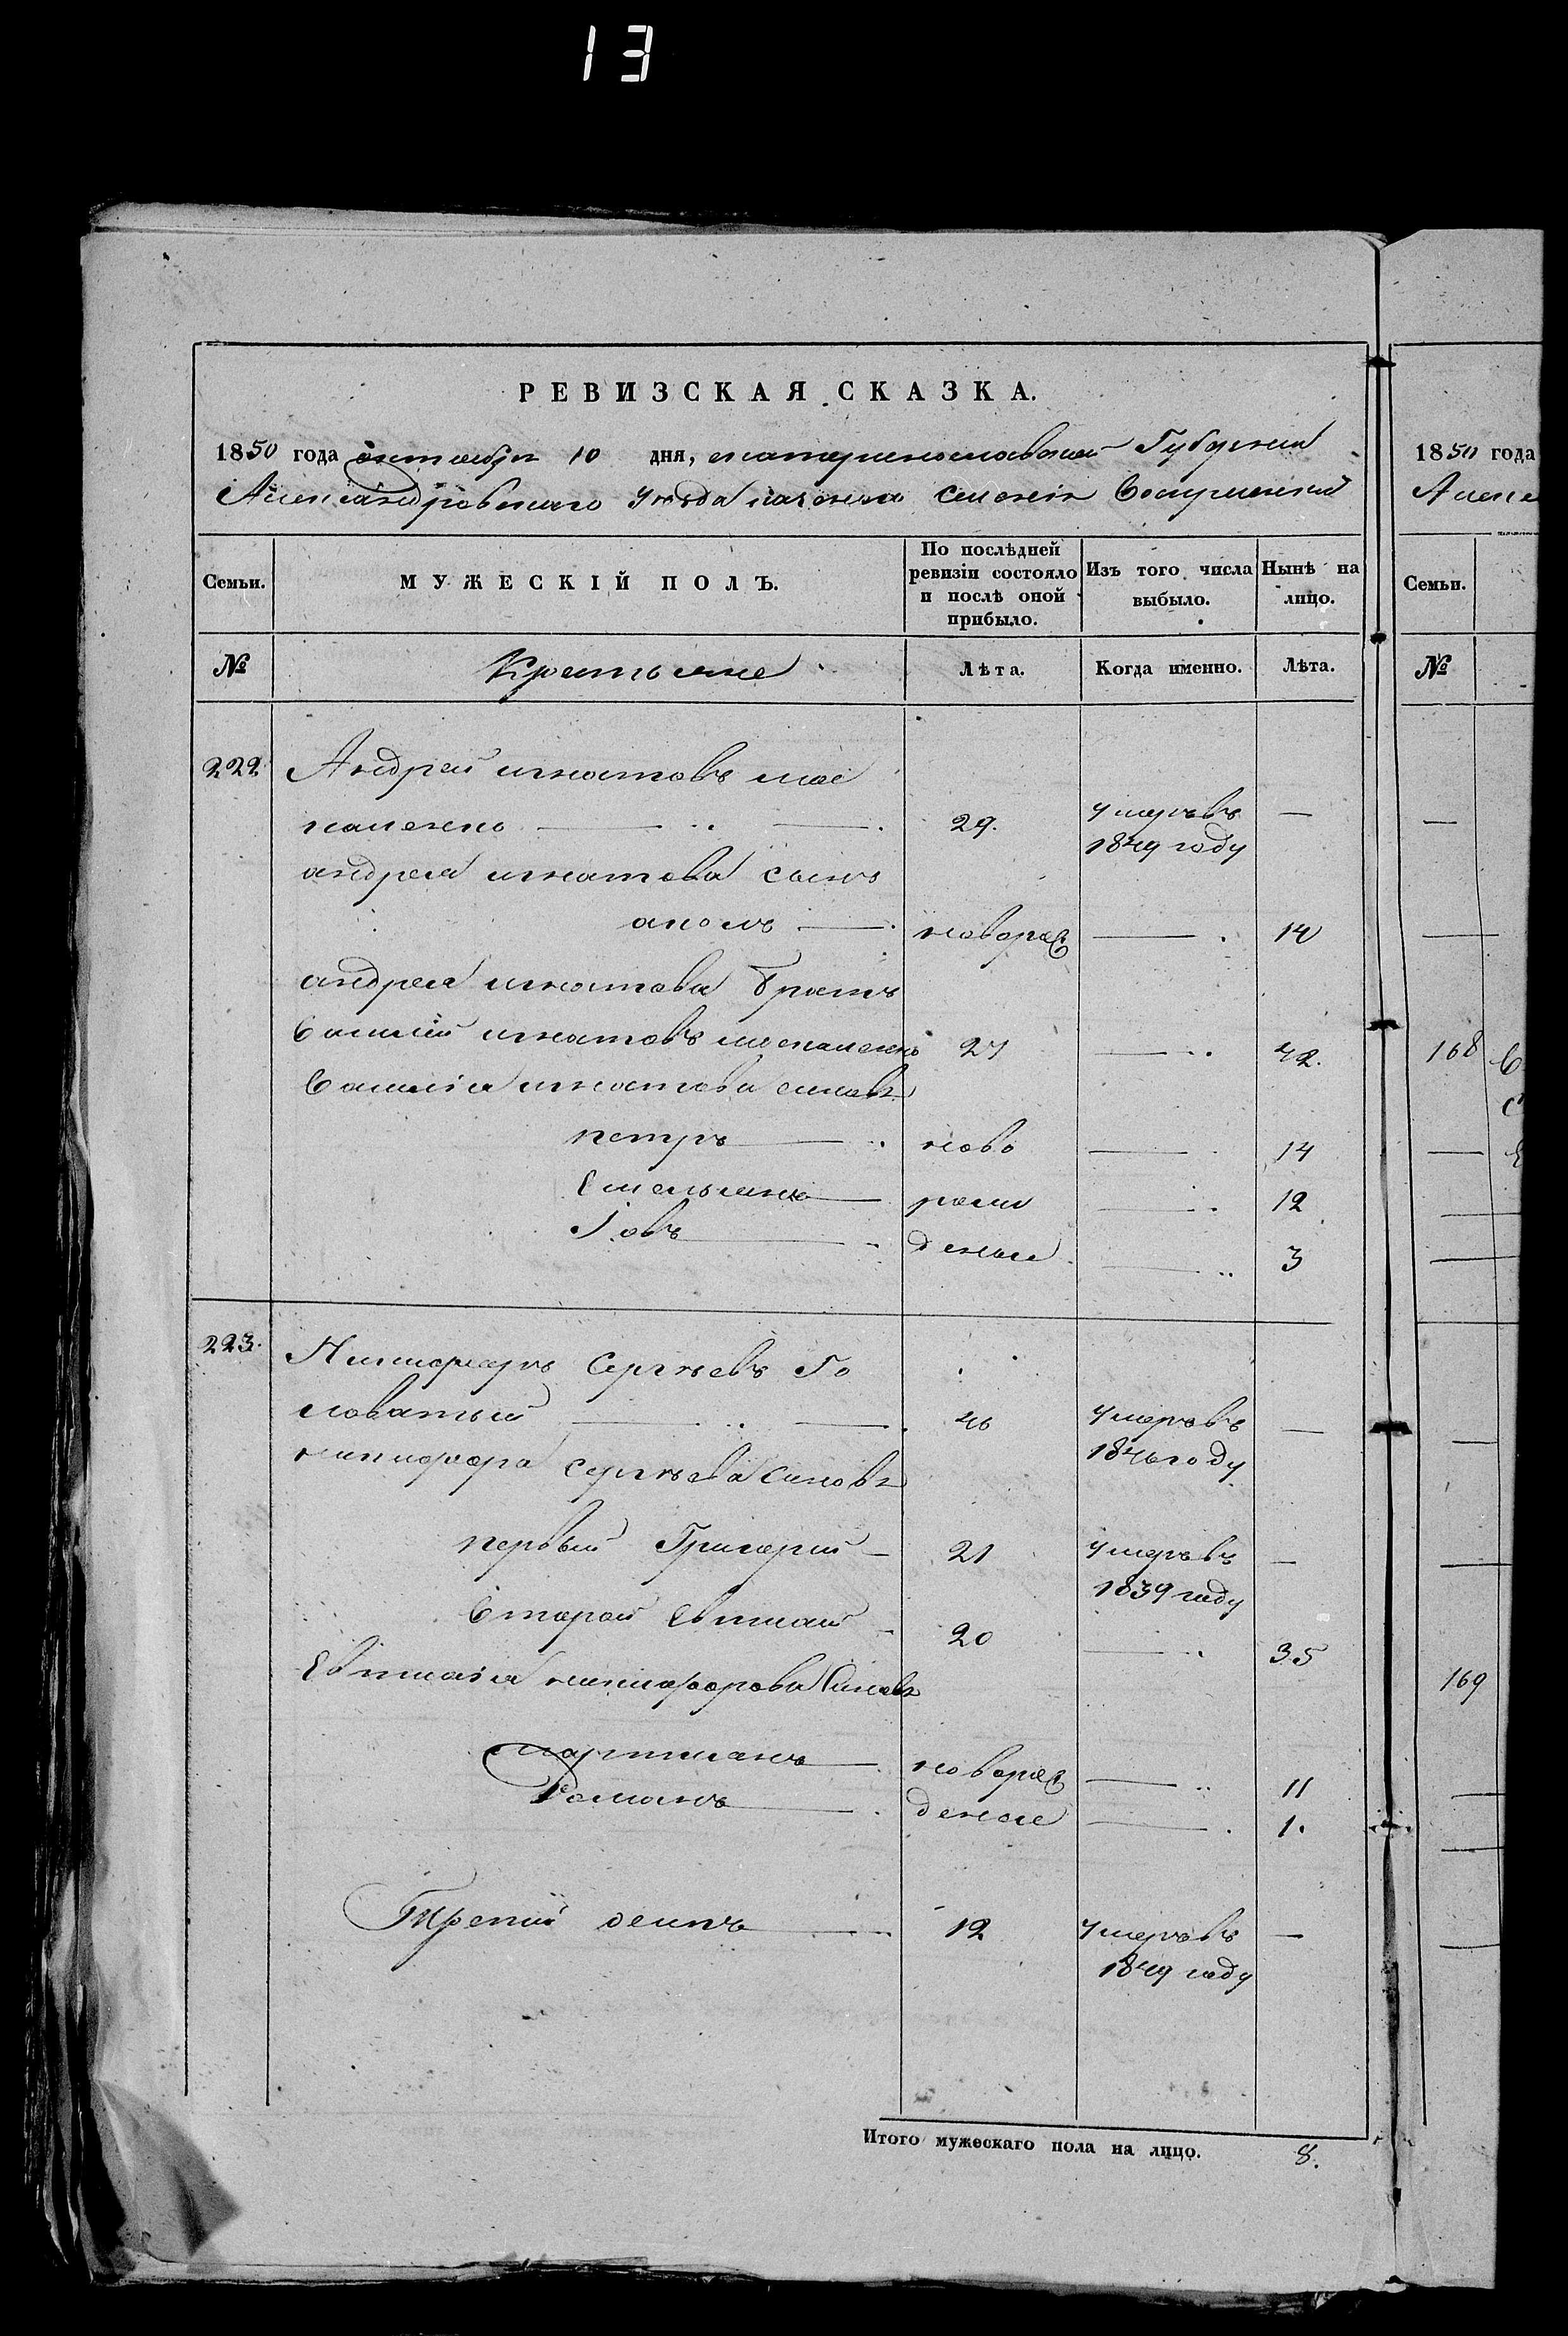 13
РЕВИЗСКАЯ СКАЗКА.
1850 года октября 10 дня, екатеринославской Губернии
Александровского уезда казенного селения
Семьи.
МУЖЕСКІЙ ПОЛЪ.
По послѣдней ревизіи состояло и послѣ оной прибыло.
Изъ того числа выбыло.
Нынѣ на лицо.
№ Крестьяне Лѣта. Когда именно. Лѣта.
222. Андрей игнатовъ мос
каленко 29. умеръ въ 1849 году —
андрея игнатова сынъ
новорож 14
андрея игнатова братъ
Василій игнатовъ москаленко 27 42.
Василія игнатова синовя
петръ ново 14
Емельянъ рож 12
Іовъ деные 3
223. Никифоръ Сергѣевъ Го
ловатый 46 умеръ въ 1846 году —
никифора сергѣева синовя
первый Григорий 21 умеръ въ 1839 году —
Второй Евтихий 20 35
Евтихия никифорова синовя
мартинъ новорож 11
Романъ деные 1.
Третий осипъ 12 умеръ въ 1849 году —
Итого мужескаго пола на лицо. 8.
1850 года
Алекса
Семьи.
№
168
169